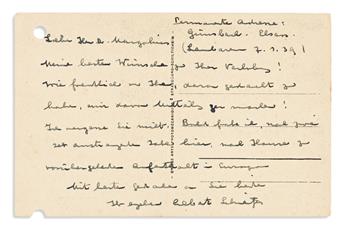 Permanente Adresse:
Günsbach. Elsass.
Lieber Herr Margolius (Lambarene 7.1.39)
Meine besten Wünsche zu Ihrer Verlobung!
Wie freundlich von Ihnen, daran gedacht zu
haben, mir davon Mitteilung zu machen!
Ich vergesse Sie nicht. Bald fahre ich, nach zwei
hier, nach Hause zu
vorübergehendem Aufenthalt in Europa
Mit besten Gedanken an Sie beide
Ihr ergebener Albert Schweitzer